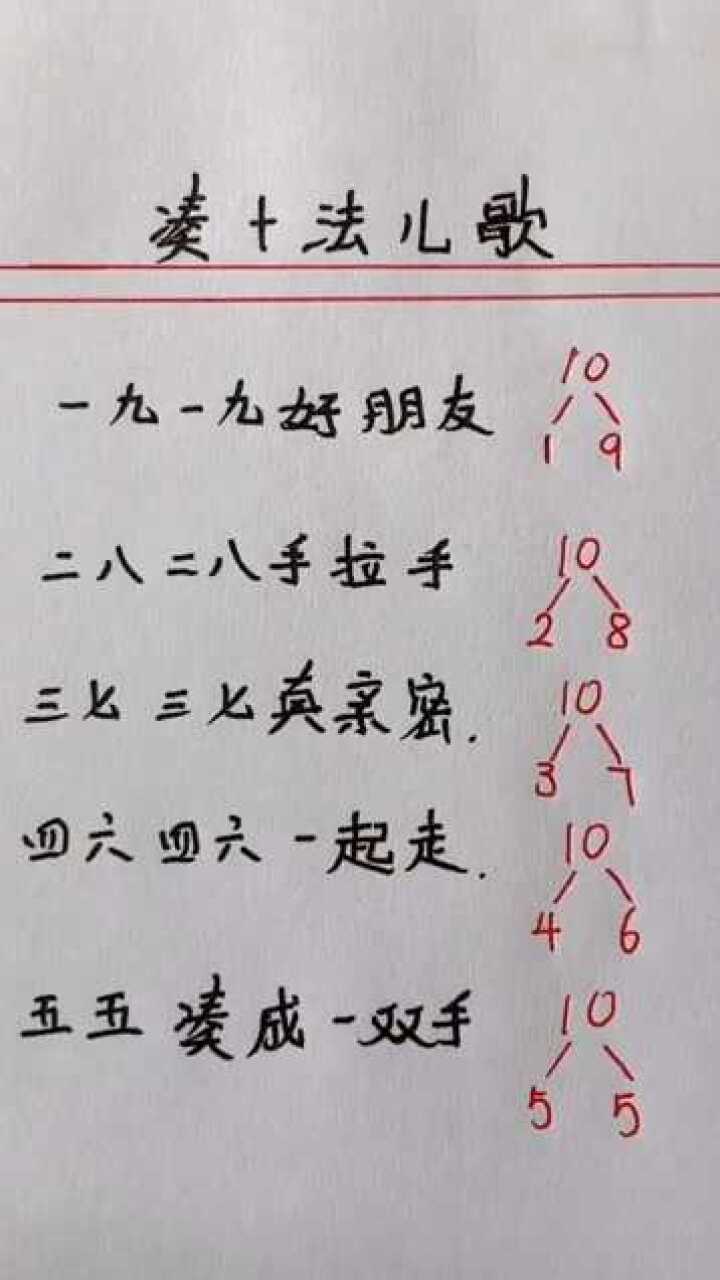 凑十法儿歌
一九一九好朋友
10
1 9
二八二八手拉手
10
2 8
三七三七真亲密.
10
3 7
四六四六一起走.
10
4 6
五五凑成一双手
10
5 5